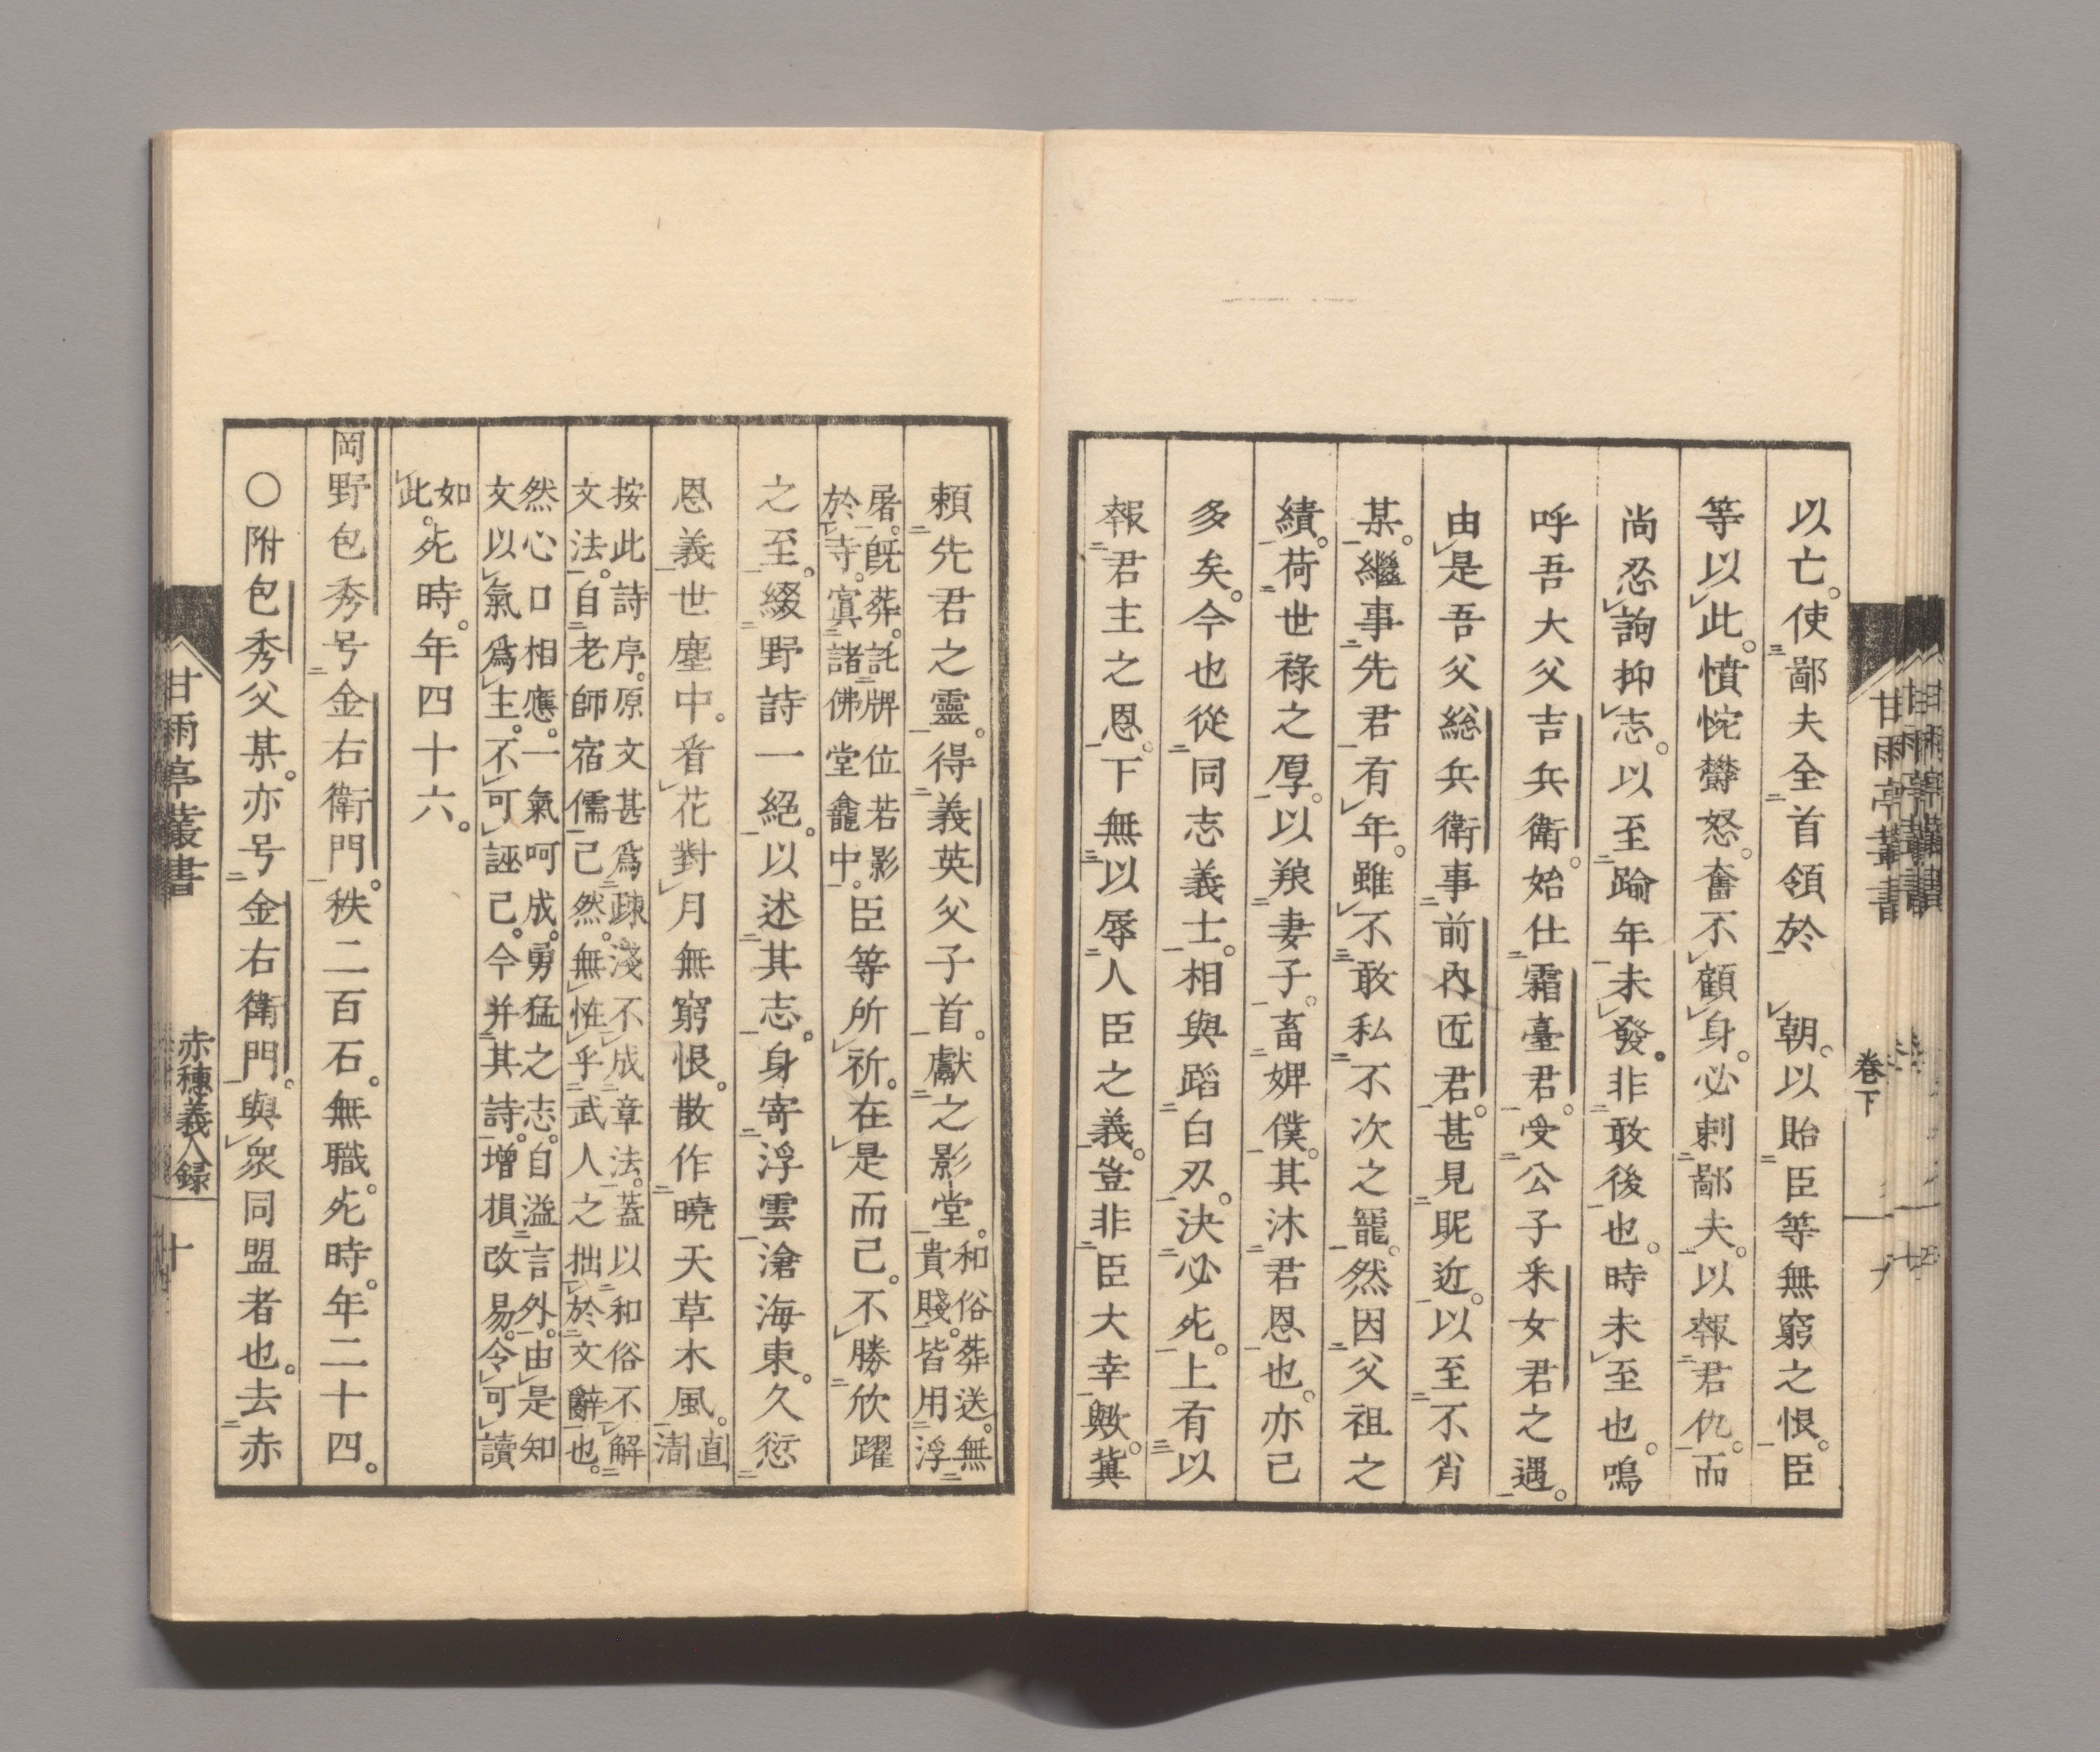 以亡。使鄙夫全首領於　朝。以貽臣等無窮之恨。臣
等以此。憤惋欝怒。奮不顧身。必刺鄙夫。以報君仇。而
尚忍詢抑志。以至踰年未發。非敢後也。時未至也。嗚
呼吾大父吉兵衛。始仕霜臺君。受公子釆女君之遇。
由是吾父総兵衛事前內匠君。甚見眤近。以至不肖
某。繼事先君有年。雖不敢私不次之寵。然因父祖之
績。荷世祿之厚。以粮妻子。畜婢僕。其沐君恩也。亦已
多矣。今也從同志義士。相與蹈白刄。決必死。上有以
報君主之恩。下無以辱人臣之義。豈非臣大幸歟。冀
甘雨亭叢書
卷下
九
頼先君之靈。得義英父子首。獻之影堂。和俗葬送。無
貴賤。皆用浮
屠。旣葬。託牌位若影
於寺。寘諸佛堂龕中。臣等所祈。在是而已。不勝欣躍
之至。綴野詩一絕。以述其志。身寄浮雲滄海東。久愆
恩義世塵中。看花對月無窮恨。散作曉天草木風。直
清
按此詩序。原文甚爲疎淺不成章法。蓋以和俗不解
文法。自老師宿儒已然。無恠乎武人之拙於文辭也。
然心口相應。一氣呵成。勇猛之志。自溢言外。由是知
文以氣爲主。不可誣已。今并其詩。增損改易。令可讀
如
此。死時。年四十六。
岡野包秀号金右衛門。秩二百石。無職。死時。年二十四。
○附包秀父某。亦号金右衛門。與衆同盟者也。去赤
甘雨亭叢書
赤穗義人録
十